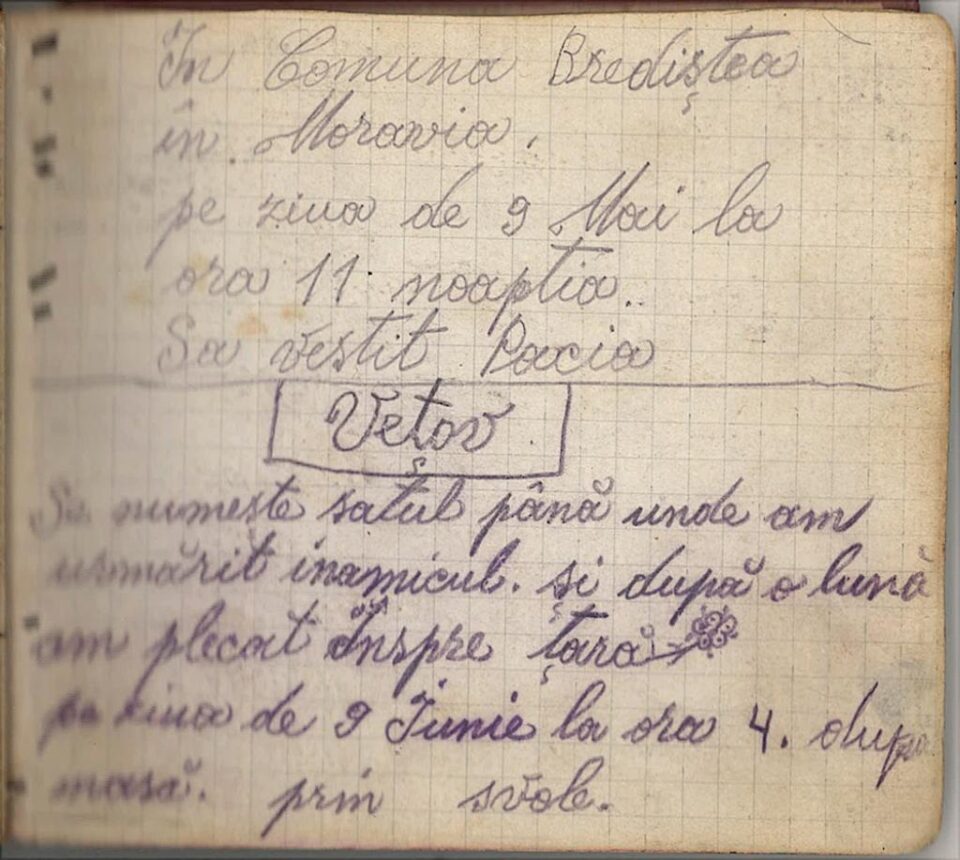 În Comuna Brediștea
în Moravia.
pe ziua de 9 Mai la
ora 11 noaptia.
Sa vestit Pacia
Vețov
Se numește satul până unde am
urmărit inamicul. și după o lună
am plecat înspre țară
pe ziua de 9 Iunie la ora 4. după
masă. prin svole.